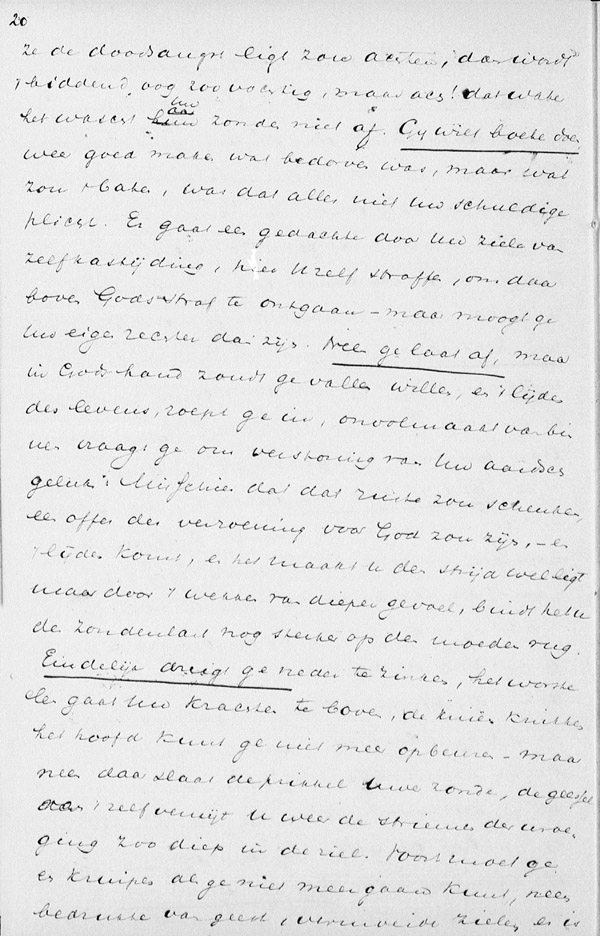 20
ze de doodsangst ligt zou achten, dan wordt
't biddend oog zoo vochtig, maar ach! dat water
het wascht uw
aar zonden niet af. Gij wilt boete doen
weer goed maken wat bedorven was, maar wat
zou 't baten, was dat alles niet uw schuldige
plicht. Er gaat een gedachte door Uw ziele van
zelfkastijding, hier Uzelf straffen, om daar
boven Gods straf te ontgaan – maar moogt ge
uw eigen rechter dan zijn. Neen ge laat af, maar
in Gods hand zoudt ge vallen willen, en 't lijden
des levens, roept ge in, onvolmaakt van bin
nen vraagt ge om verstoring van Uw aardsch
geluk. Misschien dat dat ruste zou schenken,
een offer der verzoening voor God zou zijn, – en
't lijden komt, en het maakt u den strijd wel ligt
maar door 't wekken van dieper gevoel, bindt het u
de zondenlast nog sterker op den moeden rug.
Eindelijk dreigt ge neder te zinken, het worste
len gaat Uw krachten te boven, de knieën knikken
het hoofd kunt ge niet meer opbeuren – maar
neen daar slaat de prikkel Uwer zonde, de geessel
van 't zelfverwijt U weer de striemen der wroe
ging zoo diep in de ziel. Voort moet ge
en kruipen als ge niet meer gaan kunt, neen
bedrukte van geest, vermoeide zielen er is